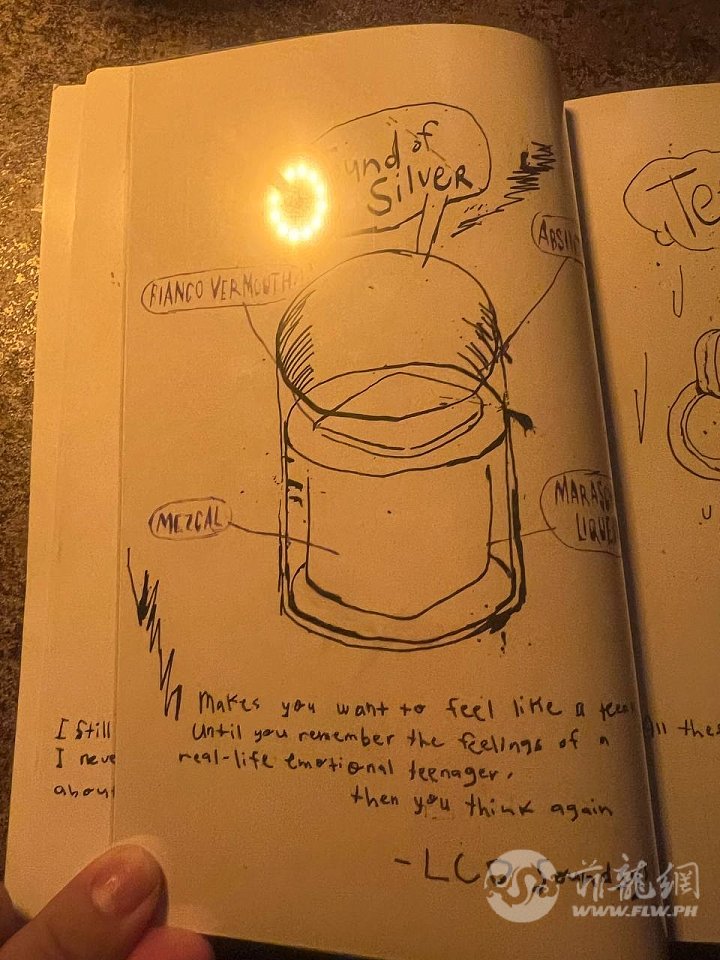 of
Silver
BIANCO VERMOUTH
MEZCAL
LIQUE
Te
Makes you want to feel like a teen
Until you remember the feelings of a
real-life emotional teenager,
then you think again
- LCD Sound
I still
I neve
about
all these
菲龍網
WWW.FLW.PH